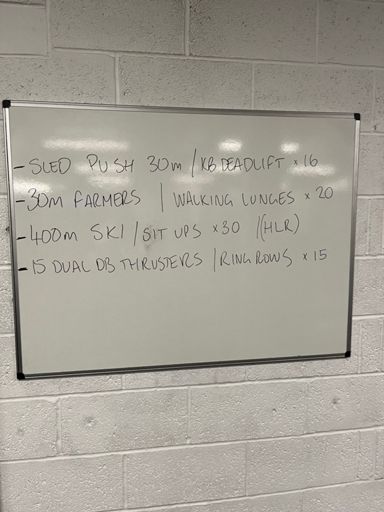 - SLED PUSH 30m / KB DEADLIFT x 16
- 30m FARMERS / WALKING LUNGES x 20
- 400m SKI / SIT UPS x 30 /(HLR)
- 15 DUAL DB THRUSTERS / RING ROWS x 15